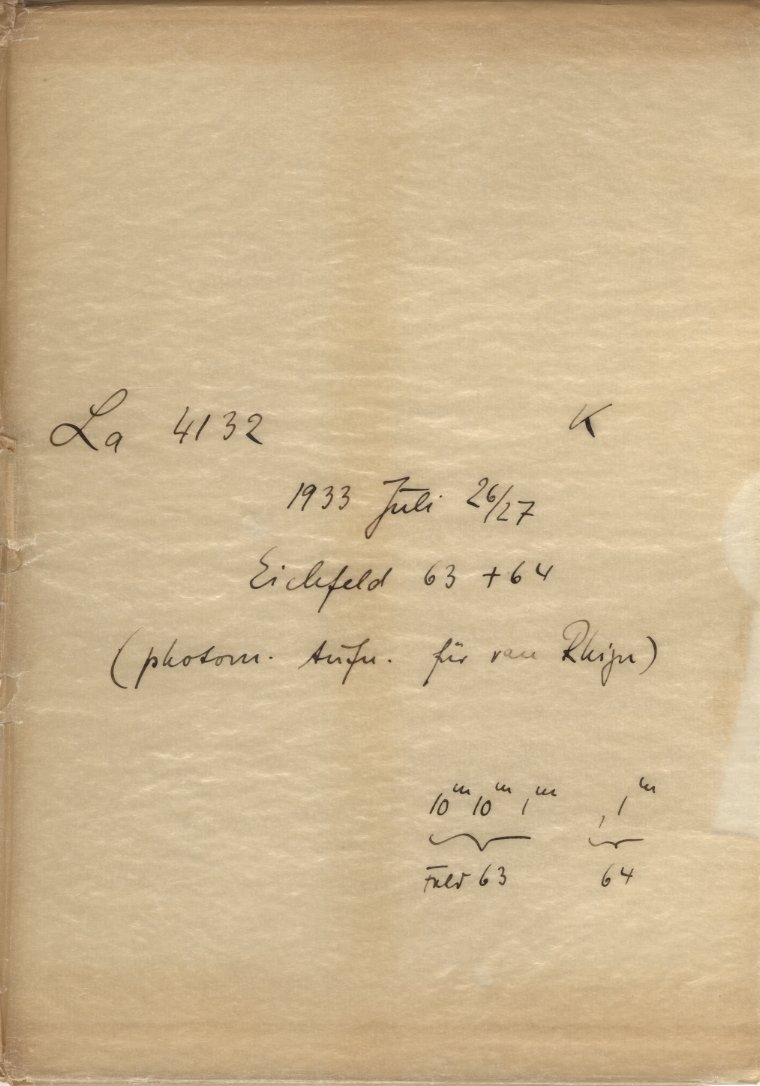 La 4132 K
1933 Juli 26/27
Eichfeld 63 + 64
(photom. Aufn. für van Rhijn)
10m 10m 1m , 1m
Feld 63 64